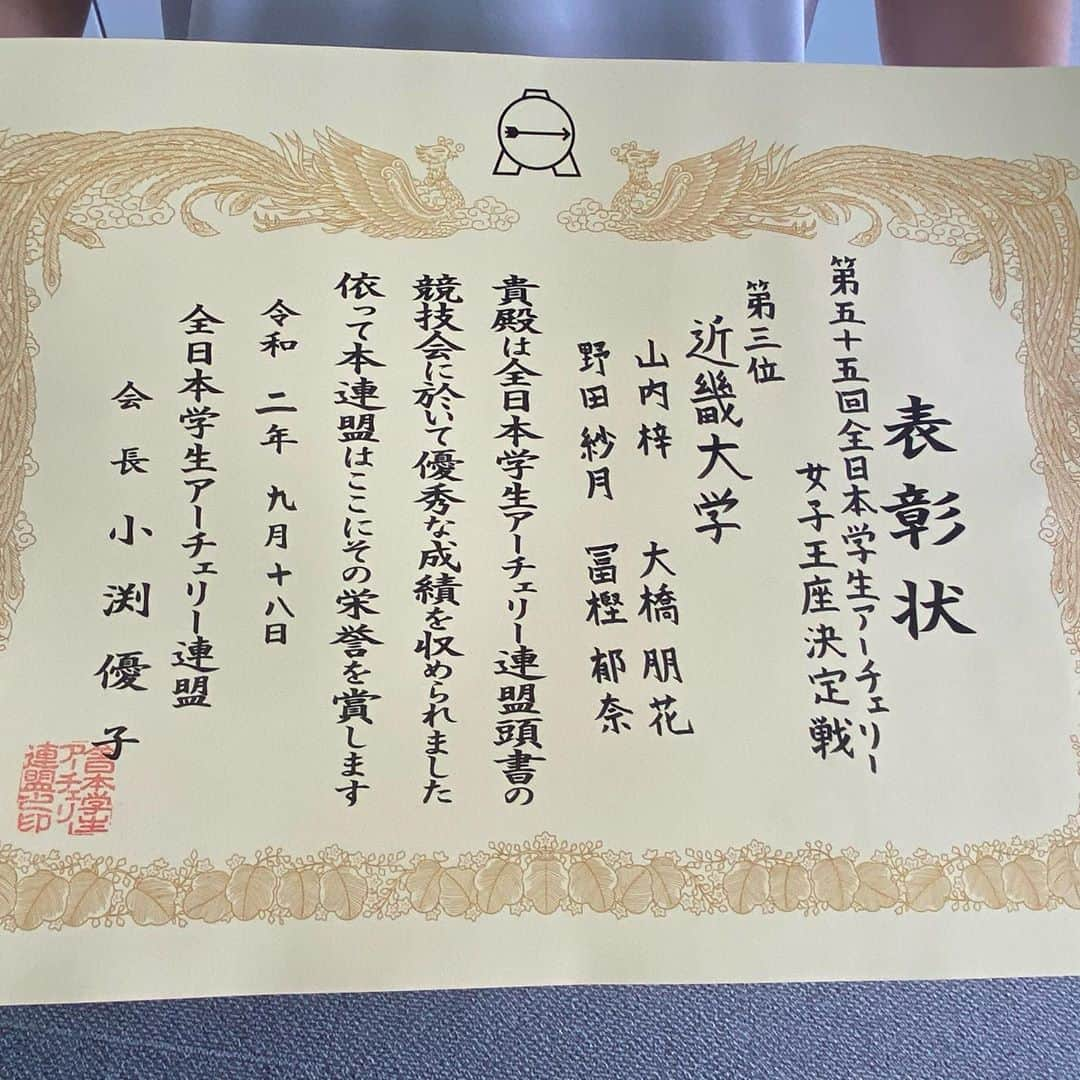 表彰状
第五十五回全日本学生アーチェリー
女子王座決定戦
第三位
近畿大学
山内梓 大橋朋花
野田紗月 冨樫郁奈
貴殿は全日本学生アーチェリー連盟頭書の
競技会に於いて優秀な成績を収められました
依って本連盟はここにその栄誉を賞します
令和二年九月十八日
全日本学生アーチェリー連盟
会長 小渕優子
全日本学生
アーチェリー
連盟之印